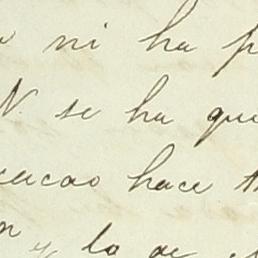 ni ha
N. se ha que
cacao hace
y lo de